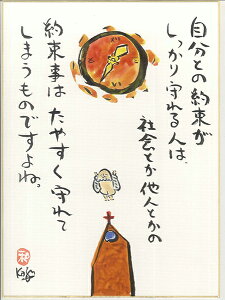 自分との約束が
しっかり守れる人は、
社会とか他人との
約束事はたやすく守れて
しまうものですよね。